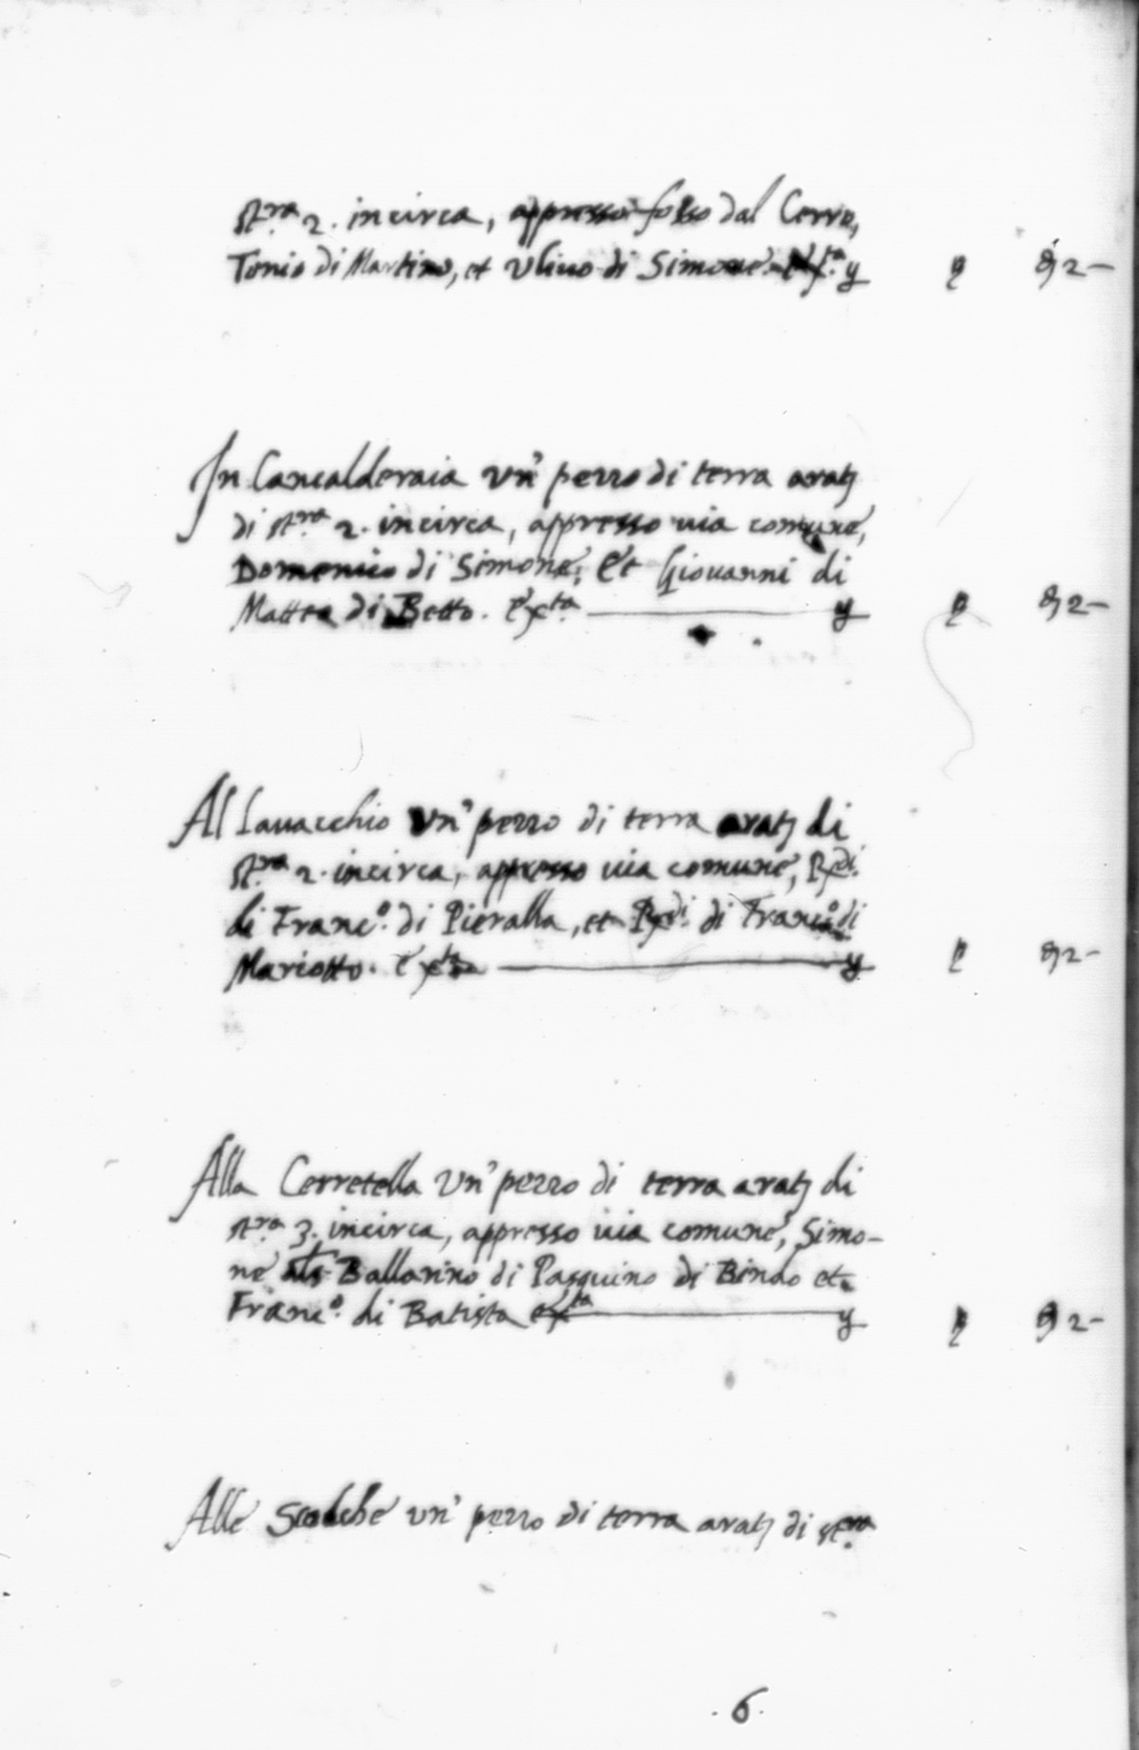 st.ra 2. incirca, appresso fosso dal Cerro,
Tonio di Martino, et Ulivo di Simone
In Cancalderaia un' pezzo di terra arat;
di st.ra 2. incirca, appresso via comune,
Domenico di Simone, Et Giovanni di
Matteo di Betto. etc.ta
Al Lavacchio un' pezzo di terra arat; di
st.ra 2. incirca, appresso via comune, Redi.
di Franc.o di Pieralla, et Redi. di Franc.o di
Mariotto. etc.ta
Alla Cerretella Un' pezzo di terra arat; di
st.ra 3. incirca, appresso via comune, Simo-
ne als Ballarino di Pasquino di Bindo et
Franc.o di Batista etc.ta
Alle Scolche un' pezzo di terra arat; di st.ra
.6.